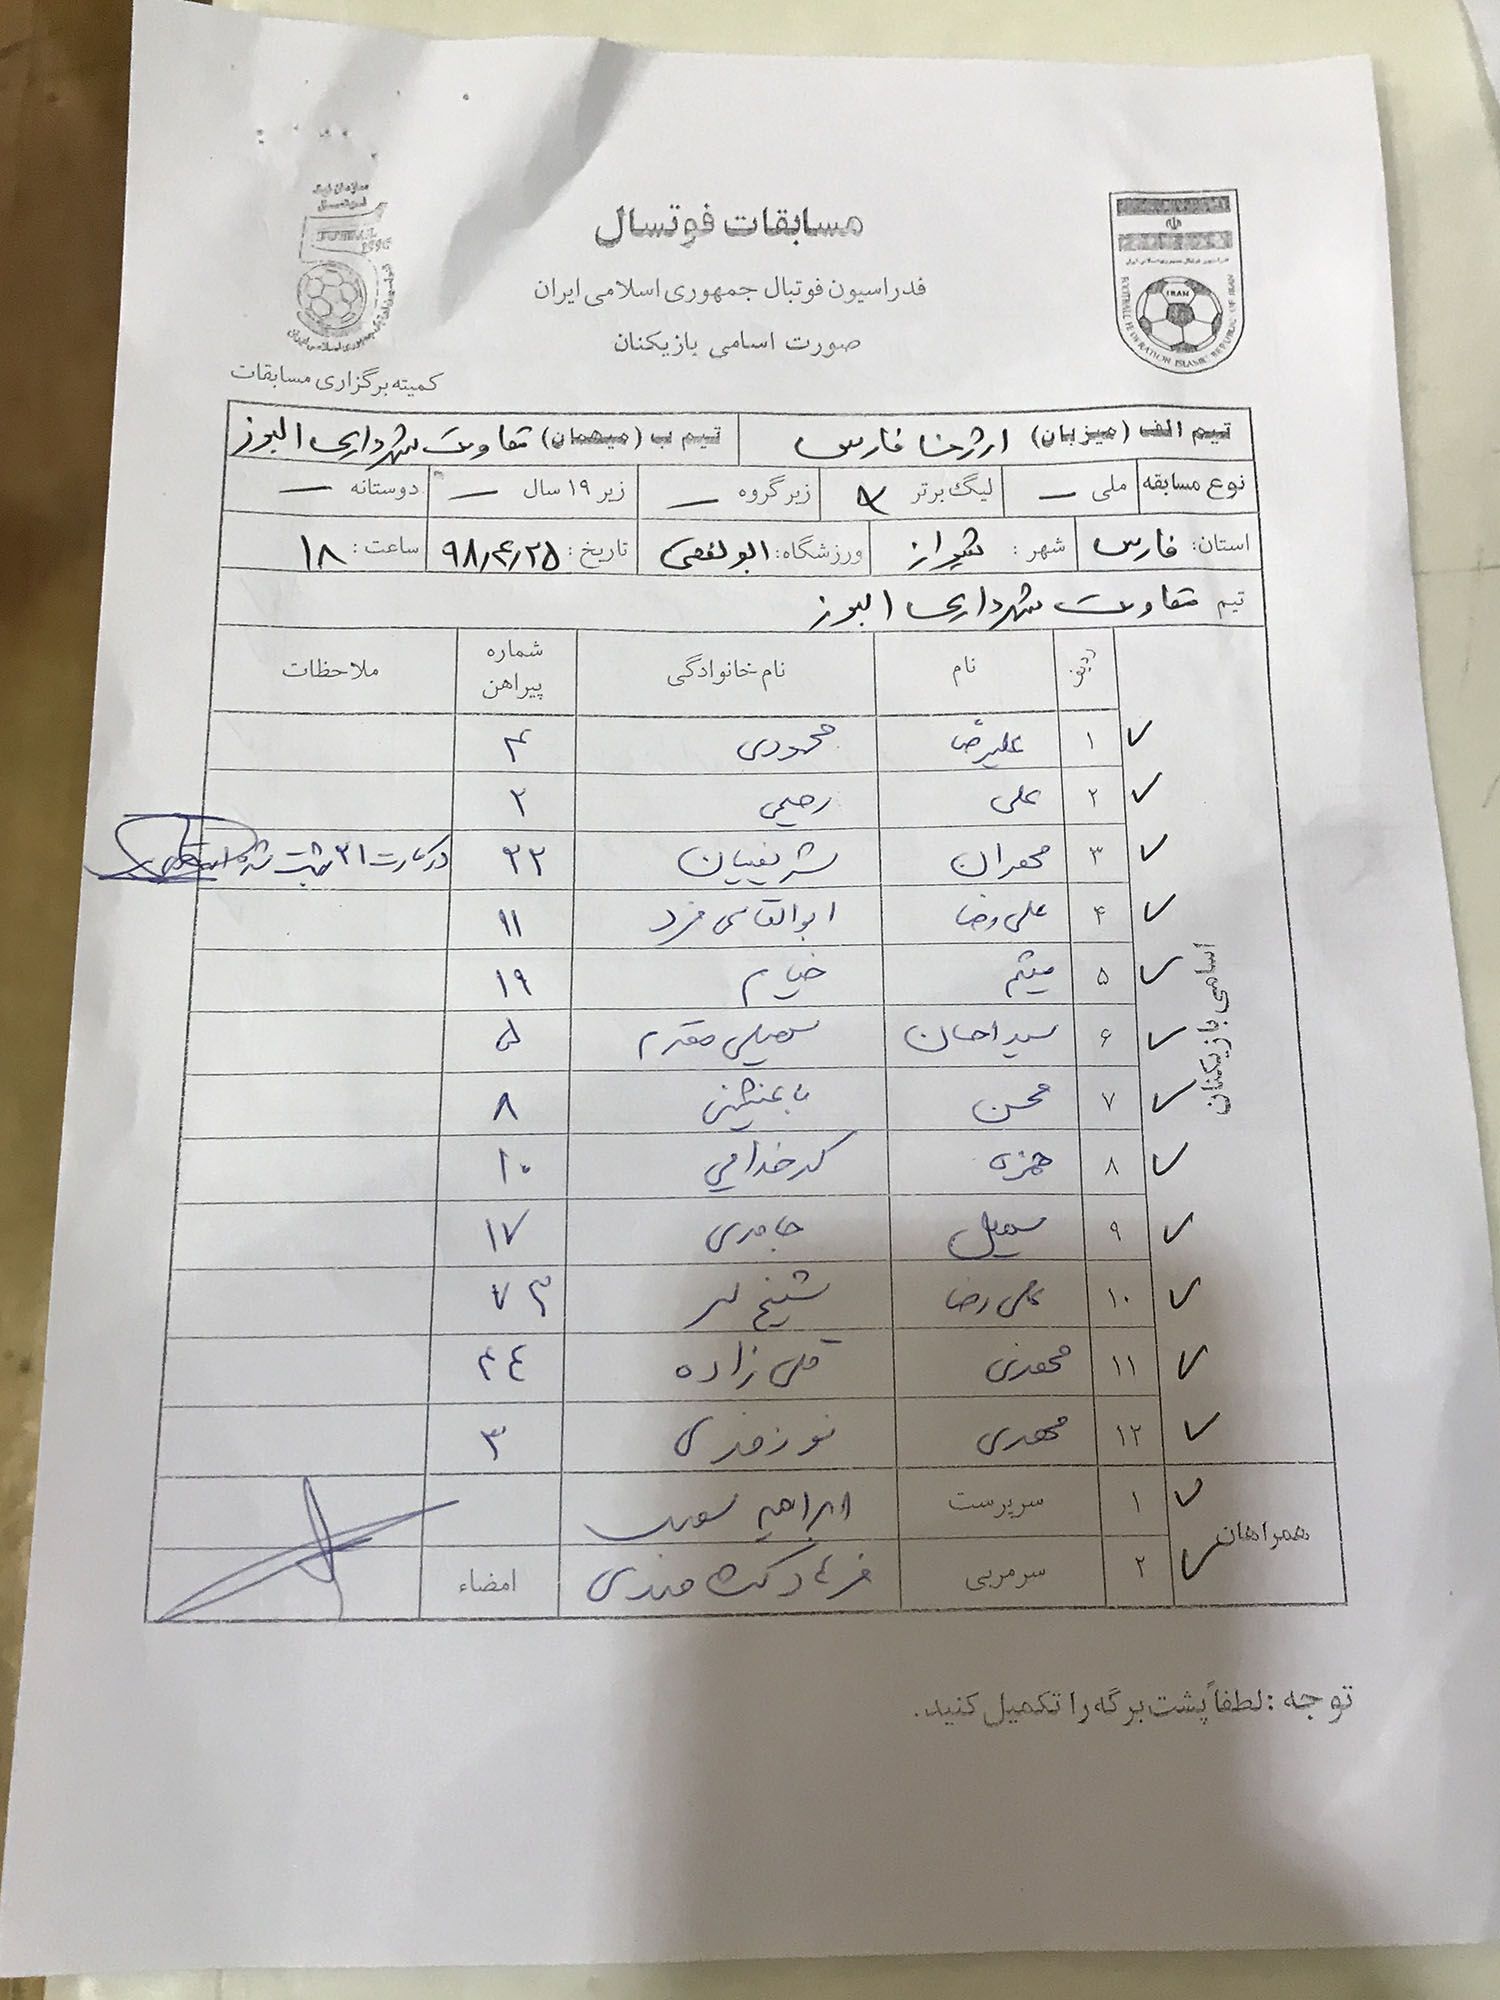 مسابقات فوتسال
فدراسیون فوتبال جمهوری اسلامی ایران
صورت اسامی بازیکنان
کمیته برگزاری مسابقات
FUTSAL
1996
IRAN
FOOTBALL FEDERATION ISLAMIC REPUBLIC OF IRAN
تیم الف (میزبان) ارژن فارس تیم ب (میهمان) مقاومت شهرداری البرز
نوع مسابقه ملی – لیگ برتر × زیر گروه – زیر ۱۹ سال – دوستانه –
استان: فارس شهر: شیراز ورزشگاه: ابولفتحی تاریخ: ۹۸٫۴٫۲۵ ساعت: ۱۸
تیم مقاومت شهرداری البرز
ردیف نام نام خانوادگی شماره پیراهن ملاحظات
اسامی بازیکنان
۱ علیرضا محمودی ۴
۲ علی رحیمی ۲
۳ مهران شریفیان ۲۲ در کارت ۲۱ ثبت شده است
۴ علی رضا ابوالقاسمی فرد ۹۱
۵ میثم خیام ۱۹
۶ سید احسان سهیلی مقدم ۵
۷ محسن باغنشینی ۸
۸ حمزه کدخدایی ۱۰
۹ سهیل حامدی ۱۷
۱۰ علی رضا شیخ لر ۷۳
۱۱ مهدی قلی زاده ۴۴
۱۲ مهدی نوزمندی ۳
همراهان
۱ سرپرست ابراهیم
۲ سرمربی فرهاد کشامندی امضاء
توجه: لطفاً پشت برگه را تکمیل کنید.